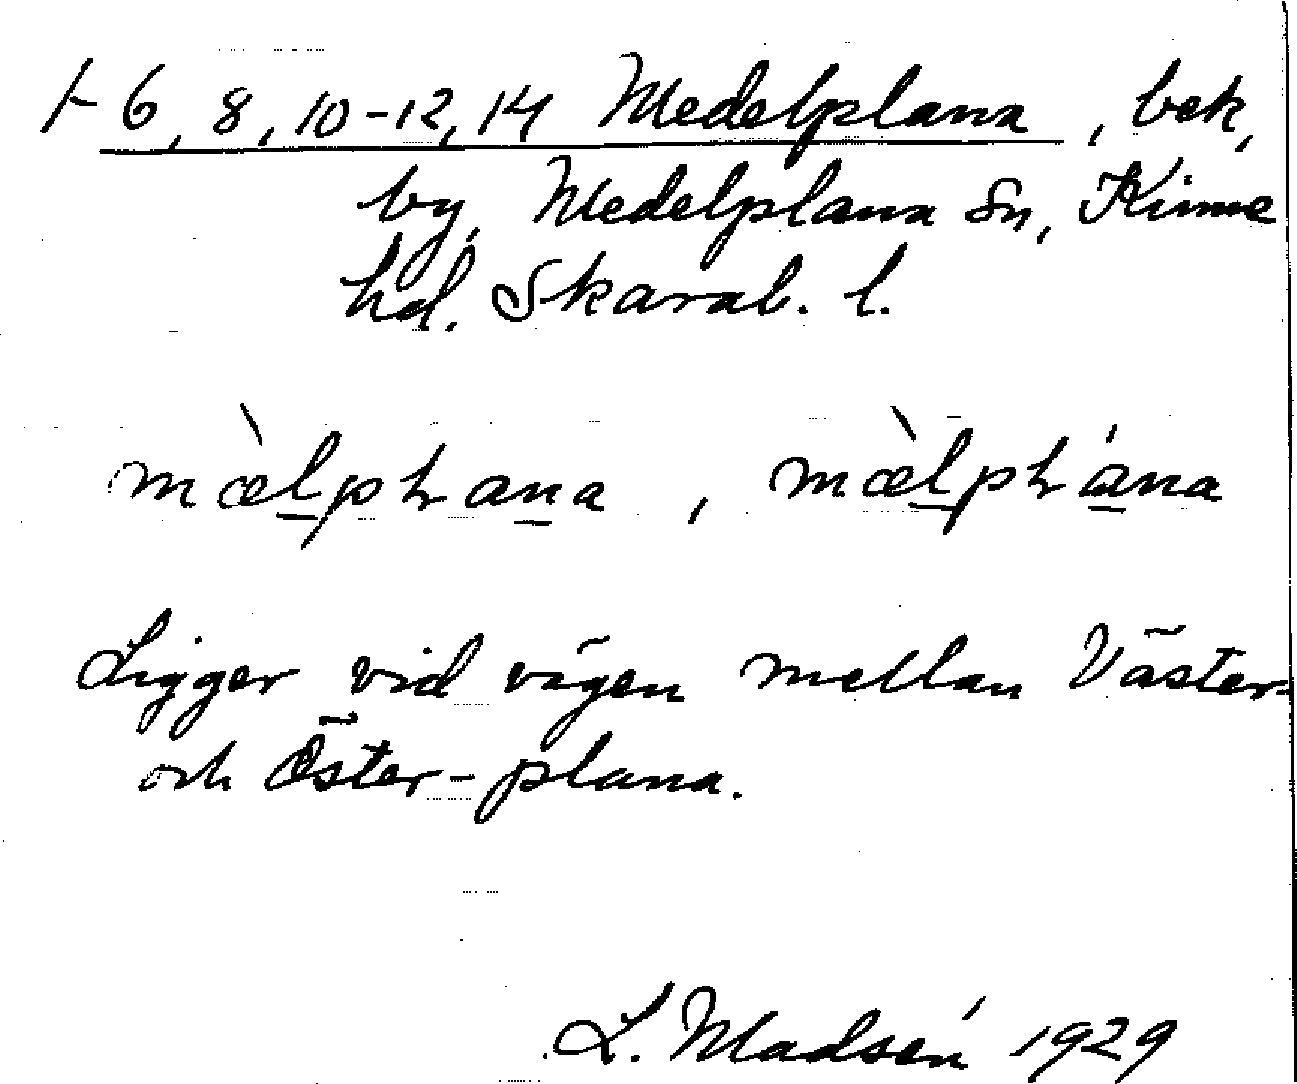 1-6, 8, 10-12, 14 Medelplana, bek,
by, Medelplana Sn, Kinne
hd. Skarab. l.
mæ̀lpꞎana, mæ̀lpꞎána
Ligger vid vägen mellan Väster-
och Öster-plana.
L. Madsén 1929